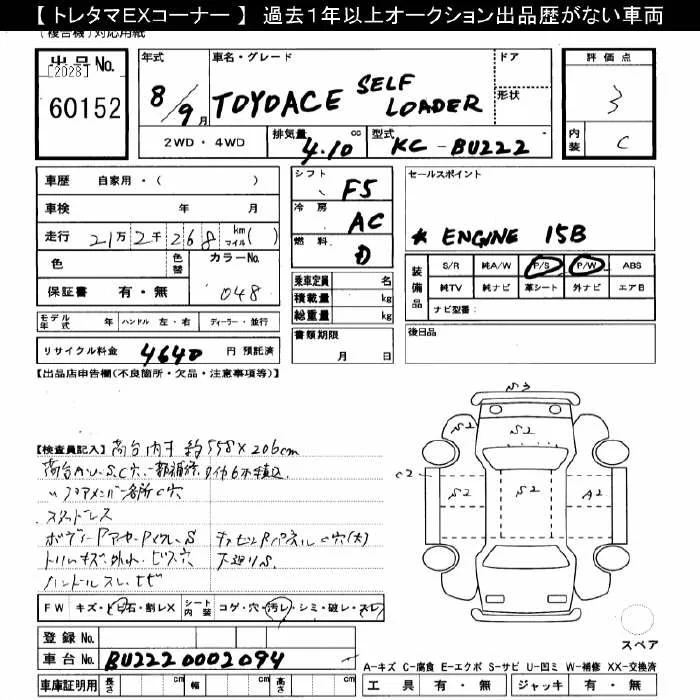 【 トレタマEXコーナー 】 過去1年以上オークション出品歴がない車両
(複合機)対応用紙
出品No.
[2028]
60152
年式
8/9月
車名・グレード
TOYOACE SELF LOADER
ドア
形状
評価点
3
内装
C
2WD・4WD
排気量 4.10 cc
型式 KC-BU222
車歴 自家用・( )
車検 年 月
走行 21万2千268 km マイル( )
色 色替 カラーNo.
048
保証書 有・無
シフト F5
冷房 AC
燃料 D
乗車定員 名
積載量 kg
総重量 kg
セールスポイント
* ENGINE 15B
装備品
S/R 純A/W P/S P/W ABS
純TV 純ナビ 革シート 外ナビ エアB
ナビ型番:
モデル年式 年 ハンドル 左・右 ディーラー・並行
書類期限
月 日
後日品
リサイクル料金 4640 円 預託済
【出品店申告欄(不良箇所・欠品・注意事項等)】
【検査員記入】荷台内寸 約558×206cm
荷台AU、S、C穴、一部補修
タイヤ6本積込
スタッドレス
トリムキズ、外れ、ビス穴
下廻りS
ハンドルスレ
S3
S2
S2
C2
S2
S2
A2
FW キズ・ヒ石・割レX シート内装 コゲ・穴・汚レ・シミ・破レ・スレ
登録No.
車台No. BU2220002094
車庫証明用 長さ cm 幅 cm 高さ cm
スペア
A-キズ C-腐食 E-エクボ S-サビ U-凹ミ W-補修 XX-交換済
工具 有・無 ジャッキ 有・無